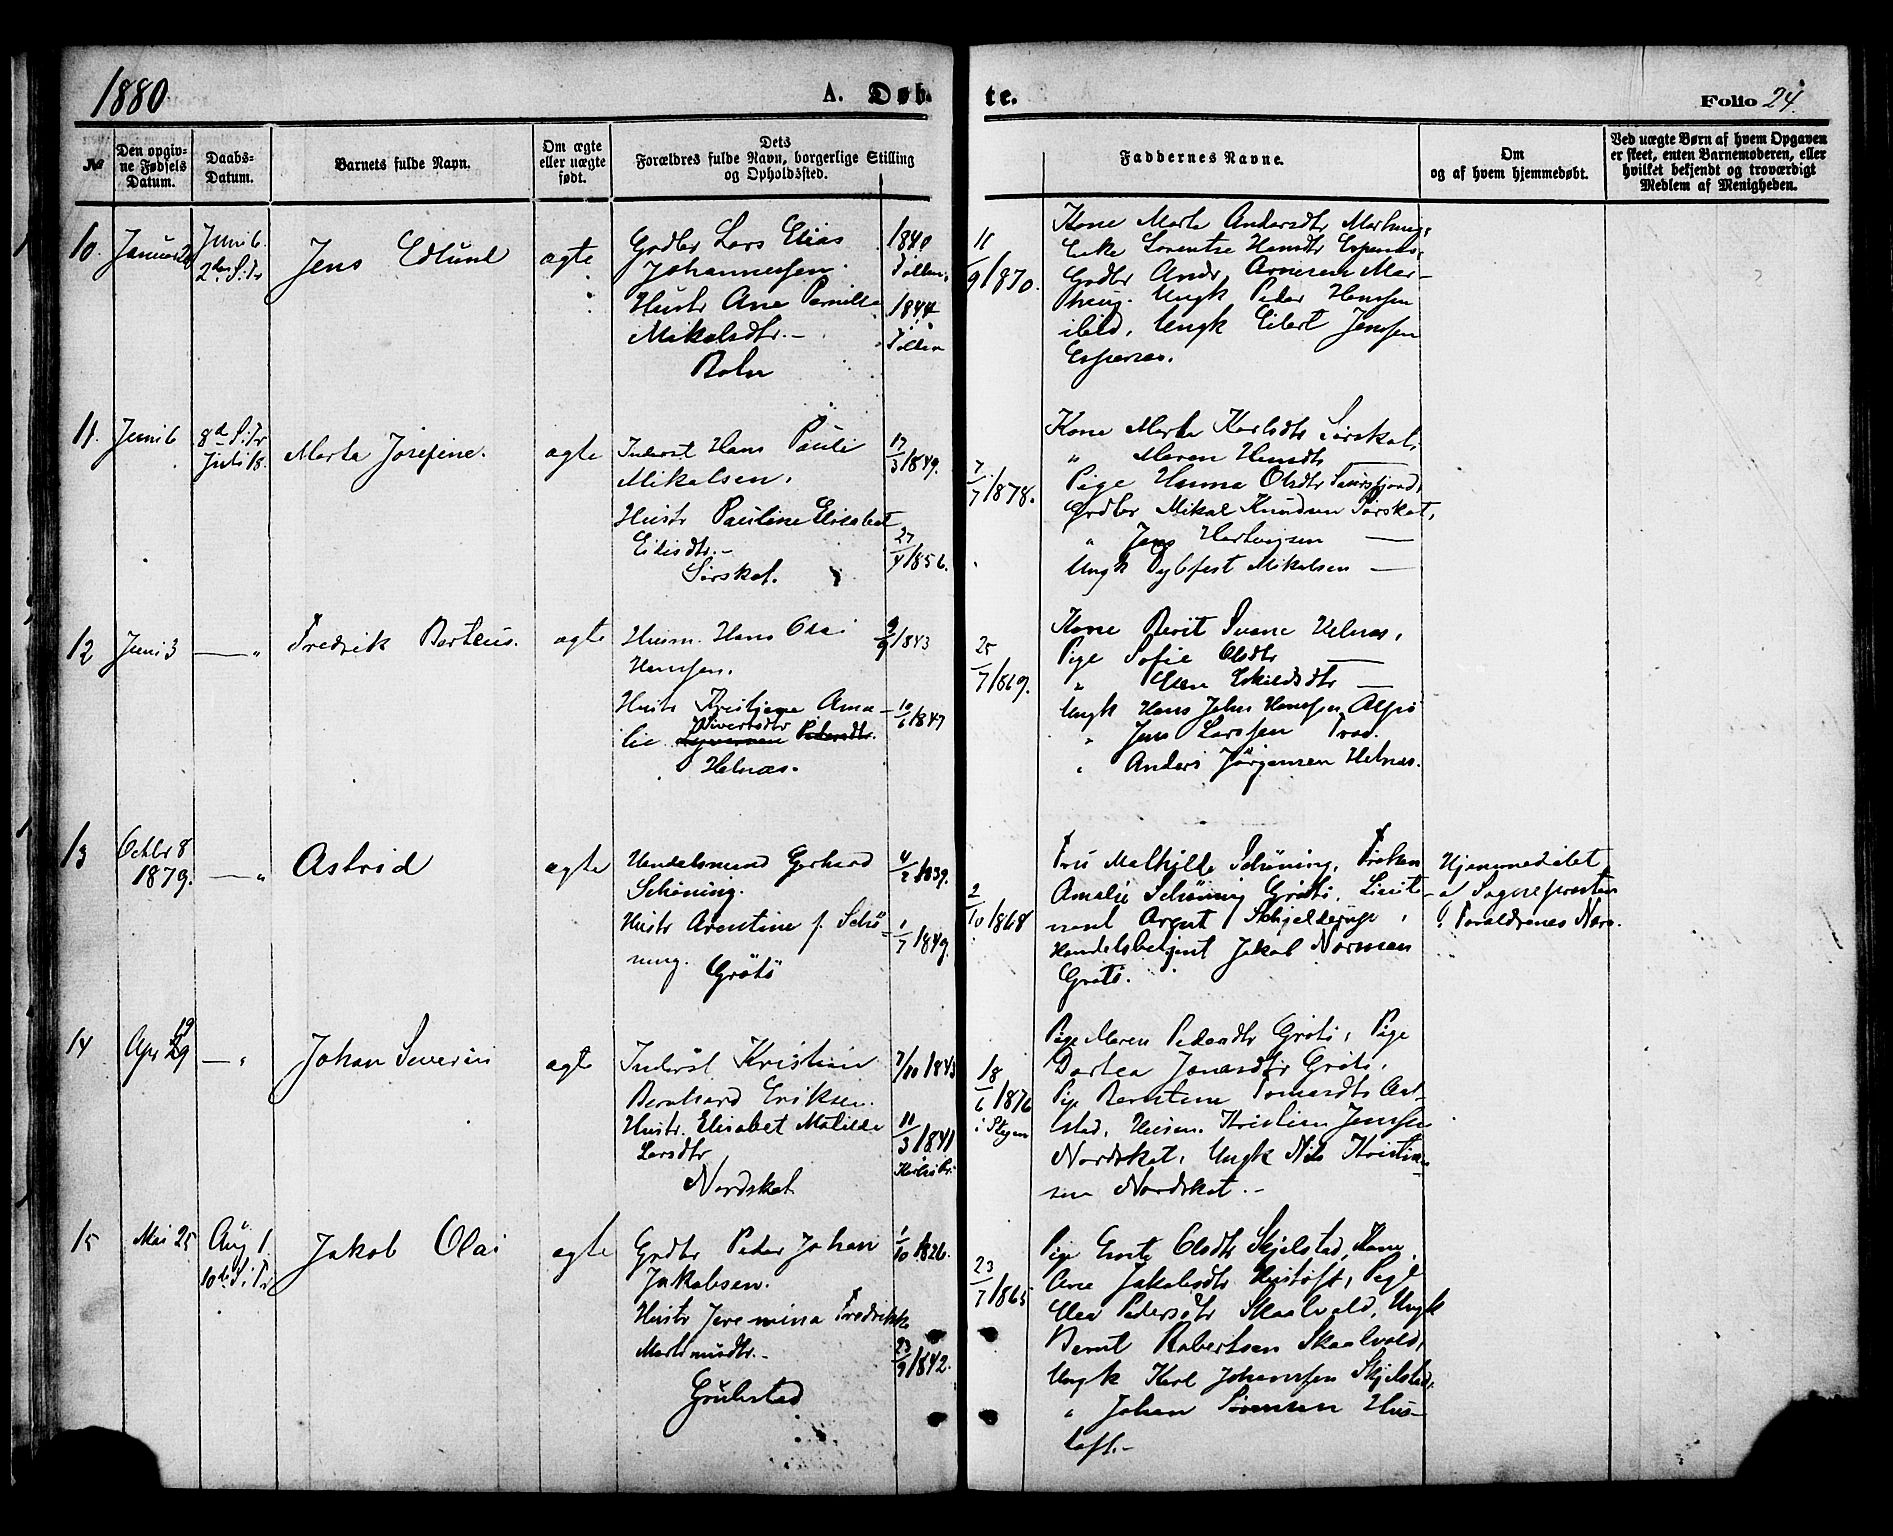 1880
A. Døb-
te.
Folio 24.
№
Den opgiv-
ne Fødsels
Datum.
Daabs-
Datum.
Barnets fulde Navn.
Om ægte
eller uægte
født.
Dets
Forældres fulde Navn, borgerlige Stilling
og Opholdssted.
Faddernes Navne.
Om
og af hvem hjemmedøbt.
Ved uægte Børn af hvem Opgaven
er skeet, enten Barnemoderen, eller
hvilket bekjendt og troværdigt
Medlem af Menigheden.
10.
Juni 6.
2den S. Tr
Jens Edlund
ægte
Gadbr Lars Elias
Johannessen.
Hustr Ane Pernille
Mikalsdtr. -
1840
1844
11
9/1870.
Kone Marta Andersdtr
Enke Lorentse Hansdtr Espenes,
Gadbr Andr. Arnesen
Ungk Peder Hanssen
ibid, Ungk Eilert Jenssen
Espenes.
11.
Juni 6
8de S. Tr
Juli 18.
Marta Josefine.
ægte
Inderst Hans Pauli
Mikalsen.
Hustr Pauline Elisabet
Sørskot.
17
3/1849.
27
4/1856.
7
7/1878.
Kone Marta Karlsdtr Sørskot,
" Maren Hansdtr —
Pige Hanna Olsdtr
Gadbr Mikal Knudsen Sørskot,
" Jens Hartvigsen —
Ungk Mikalsen —
12
Juni 3
— "
Fredrik Berteus.
ægte
Husm. Hans Olai
Hanssen.
Hustr Kristjane Ama-
lie Sivertsdtr Pedersdtr.
Helnæs.
9
9/1843
10
6/1847
25
7/1869.
Kone Berit Helnæs,
Pige Sofie Olsdtr —
" Elen Eskildsdtr —
Ungk Hans Johan Hanssen
" Jens Larssen
" Anders Jørgensen Helnæs.
13
Octbr 8
1879.
— "
Astrid
ægte
Handelsmand Gerhard
Schøning.
Hustr Arentine f. Schø-
ning.
Grøtø
4
2/1839.
1
7/1849.
2
10/1868
Fru Mathilde Schøning, Frøken
Amalie Schøning Grøtø, Lieute-
nant Arent Schjelderup,
Handelsbetjent Jakob Norman
Grøtø.
Hjemmedøbt
af Sognepresten
14
19
Apr 29
— "
Johan Severin
ægte
Inderst Kristian
Bernhard Eriksen.
Hustr. Elisabet Matilde
Larsdtr
Nordskot
11
3/1841
18
6/1876
i Stegen
Pige Maren Pedersdtr Grøtø, Pige
Dortea Jonasdtr Grøtø,
Husm. Kristian Jenssen
Nordskot, Ungk Nils Kristian-
sen Nordskot. -
15
Mai 25
Aug 1.
10de S. Tr.
Jakob Olai
ægte
Gadbr Peder Johan
Jakobsen.
Hustr Jeremina Fredrikke
Martinusdtr. -
1
10/1826.
23
9/1842.
23
7/1865
Pige Olsdtr Skjelstad, Kone
Ane Jakobsdtr Hustoft, Pige
Elen Pedersdtr Skaalvold, Ungk
Bernt Robertsen Skaalvold,
Ungk Karl Johanssen Skjelstad,
" Johan Sørensen Hus-
toft. -